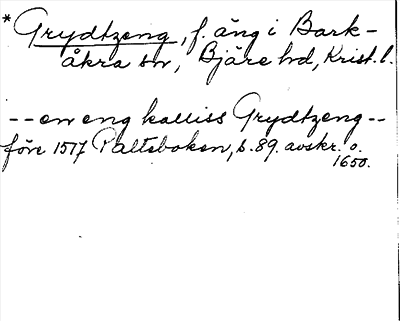 *Grydtzeng, f. äng i Bark-
åkra sn, Bjäre hd, Krist. l.
-- en eng kalliss Grydtzeng --
före 1517 Palteboken, s. 89. avskr. o.
1650.